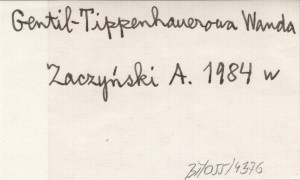 Gentil-Tippenhauerowa Wanda
Zaczyński A. 1984 w
/4376